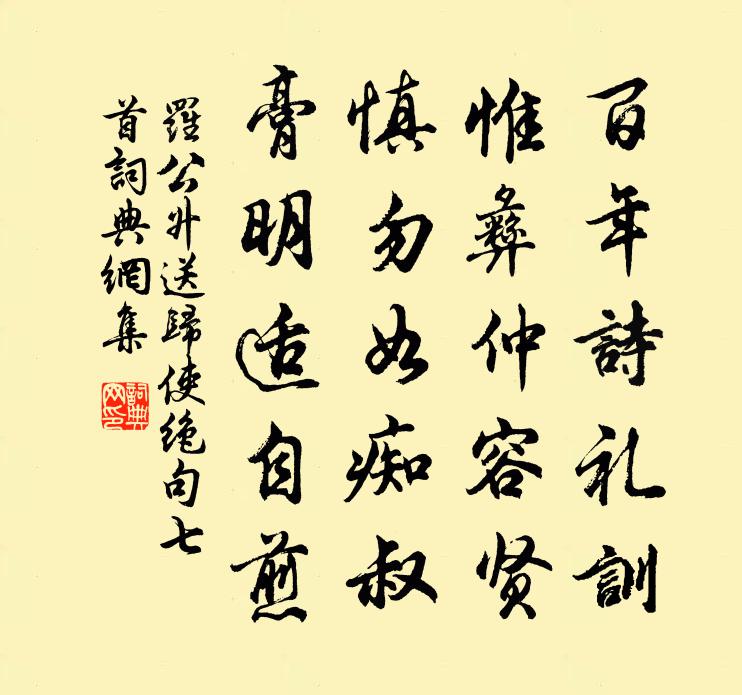 百年詩礼訓
惟彝仲容贤
慎勿如痴叔
膏明适自煎
羅公升送歸使绝句七
首詞典網集
詞典网印